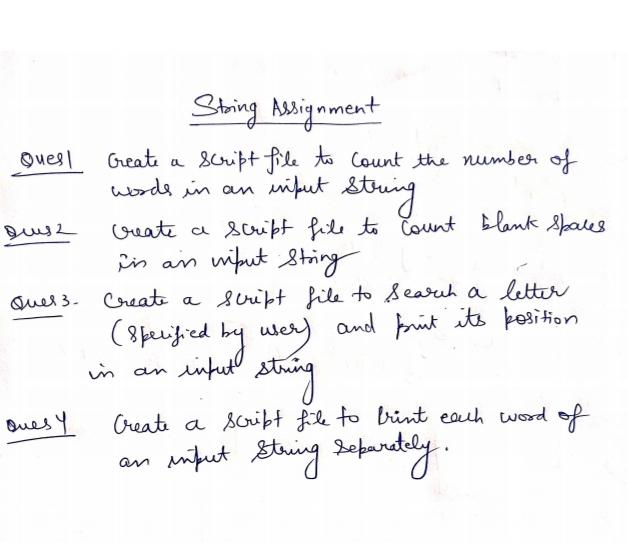 String Assignment
Ques1 Create a Script file to Count the number of
words in an input String
Ques2 Create a script file to Count blank spaces
in an input String
Ques3. Create a script file to Search a letter
(Specified by user) and print its position
in an input string
Ques4 Create a script file to print each word of
an input String Separately.